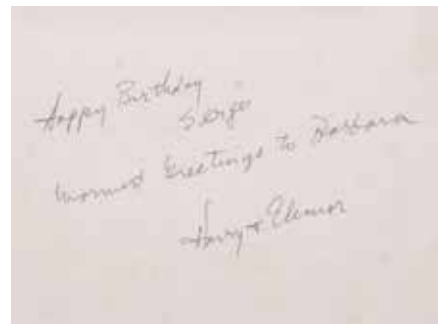 Happy Birthday
George
Warmest Greetings to Barbara
Harry + Eleanor